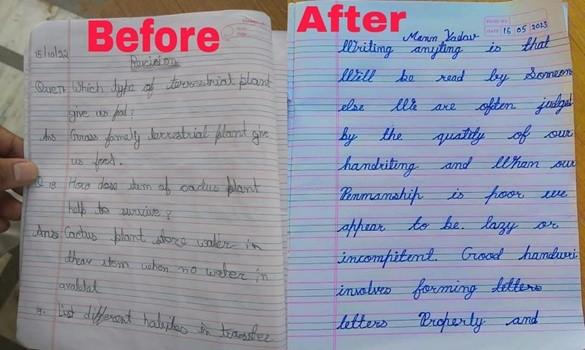 Before
15/10/22
Revision
Ques: Which type of terrestrial plant
give us
Ans Grass family terrestrial plant give
us food.
How dose stem of cactus plant
help to survive?
Ans: Cactus plant store water in
when no water in
List different in
After
DATE 16 05 2023
Mann Yadav
Writing anyting is that
Will be read by Someon
else We are often judged
by the quatily of our
handriting and When our
Penmanship is poor we
appear to be. lazy or
incompetent. Good handwri
involves forming letters
letters Properly and